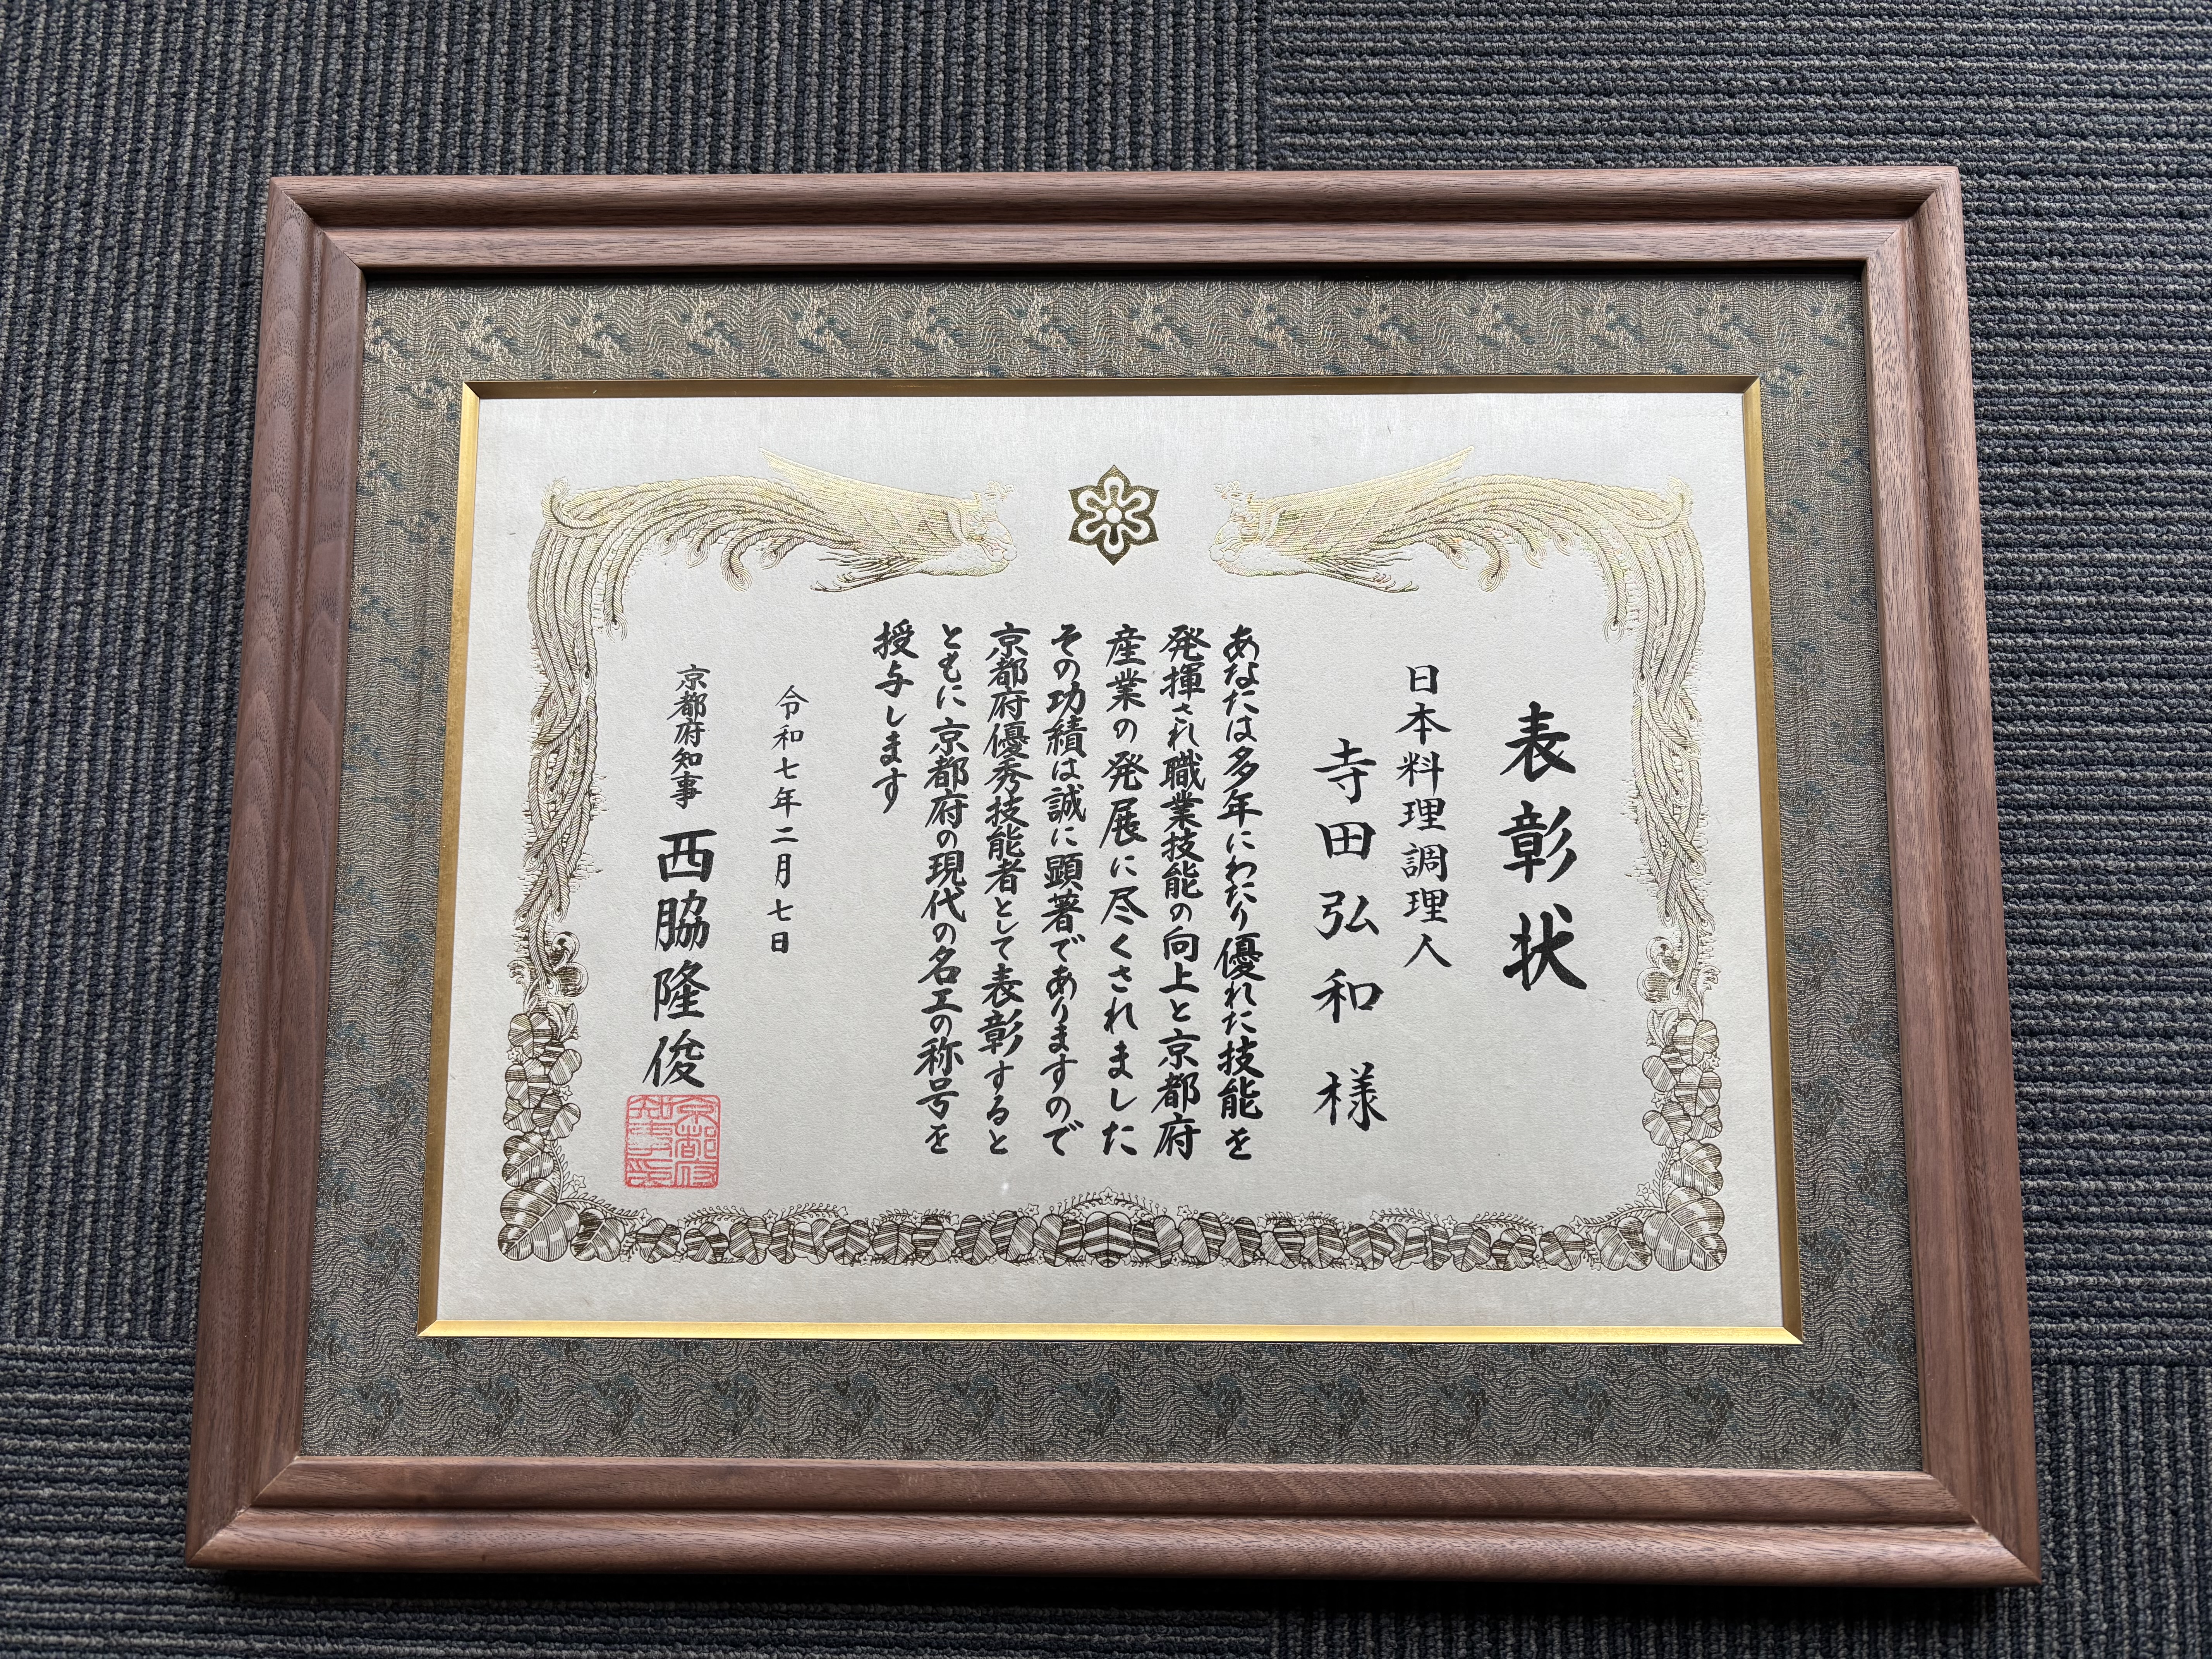 表彰状
日本料理調理人
寺田弘和様
あなたは多年にわたり優れた技能を
発揮され職業技能の向上と京都府
産業の発展に尽くされました
その功績は誠に顕著でありますので
京都府優秀技能者として表彰すると
ともに京都府の現代の名工の称号を
授与します
令和七年二月七日
京都府知事 西脇隆俊
京都府
知事印